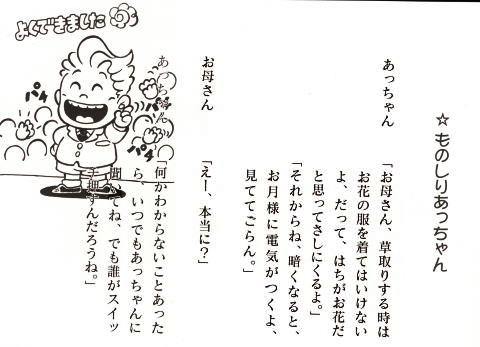 ☆ ものしりあっちゃん
あっちゃん 「お母さん、草取りする時は
お花の服を着てはいけない
よ、だって、はちがお花だ
と思ってさしにくるよ。」
「それからね、暗くなると、
お月様に電気がつくよ、
見ててごらん。」
お母さん 「えー、本当に?」
あっちゃん 「何かわからないことあった
ら、いつでもあっちゃんに
聞いてね、でも誰がスイッ
チ押すんだろうね。」
よくできました
パチ
パチ
パチ